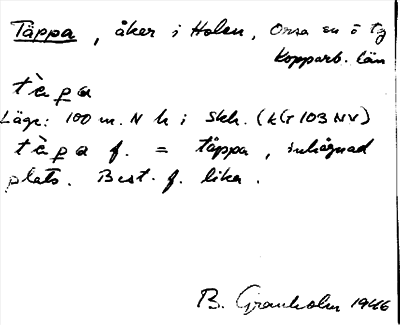 Täppa, åker i Holen, Orsa sn ö tg
Kopparb. län
tàpa
Läge: 100 m. N h i skh. (kG 103 NV)
tàpa f. = täppa, inhägnad
plats. Best. f. lika.
B. Granholm 1946